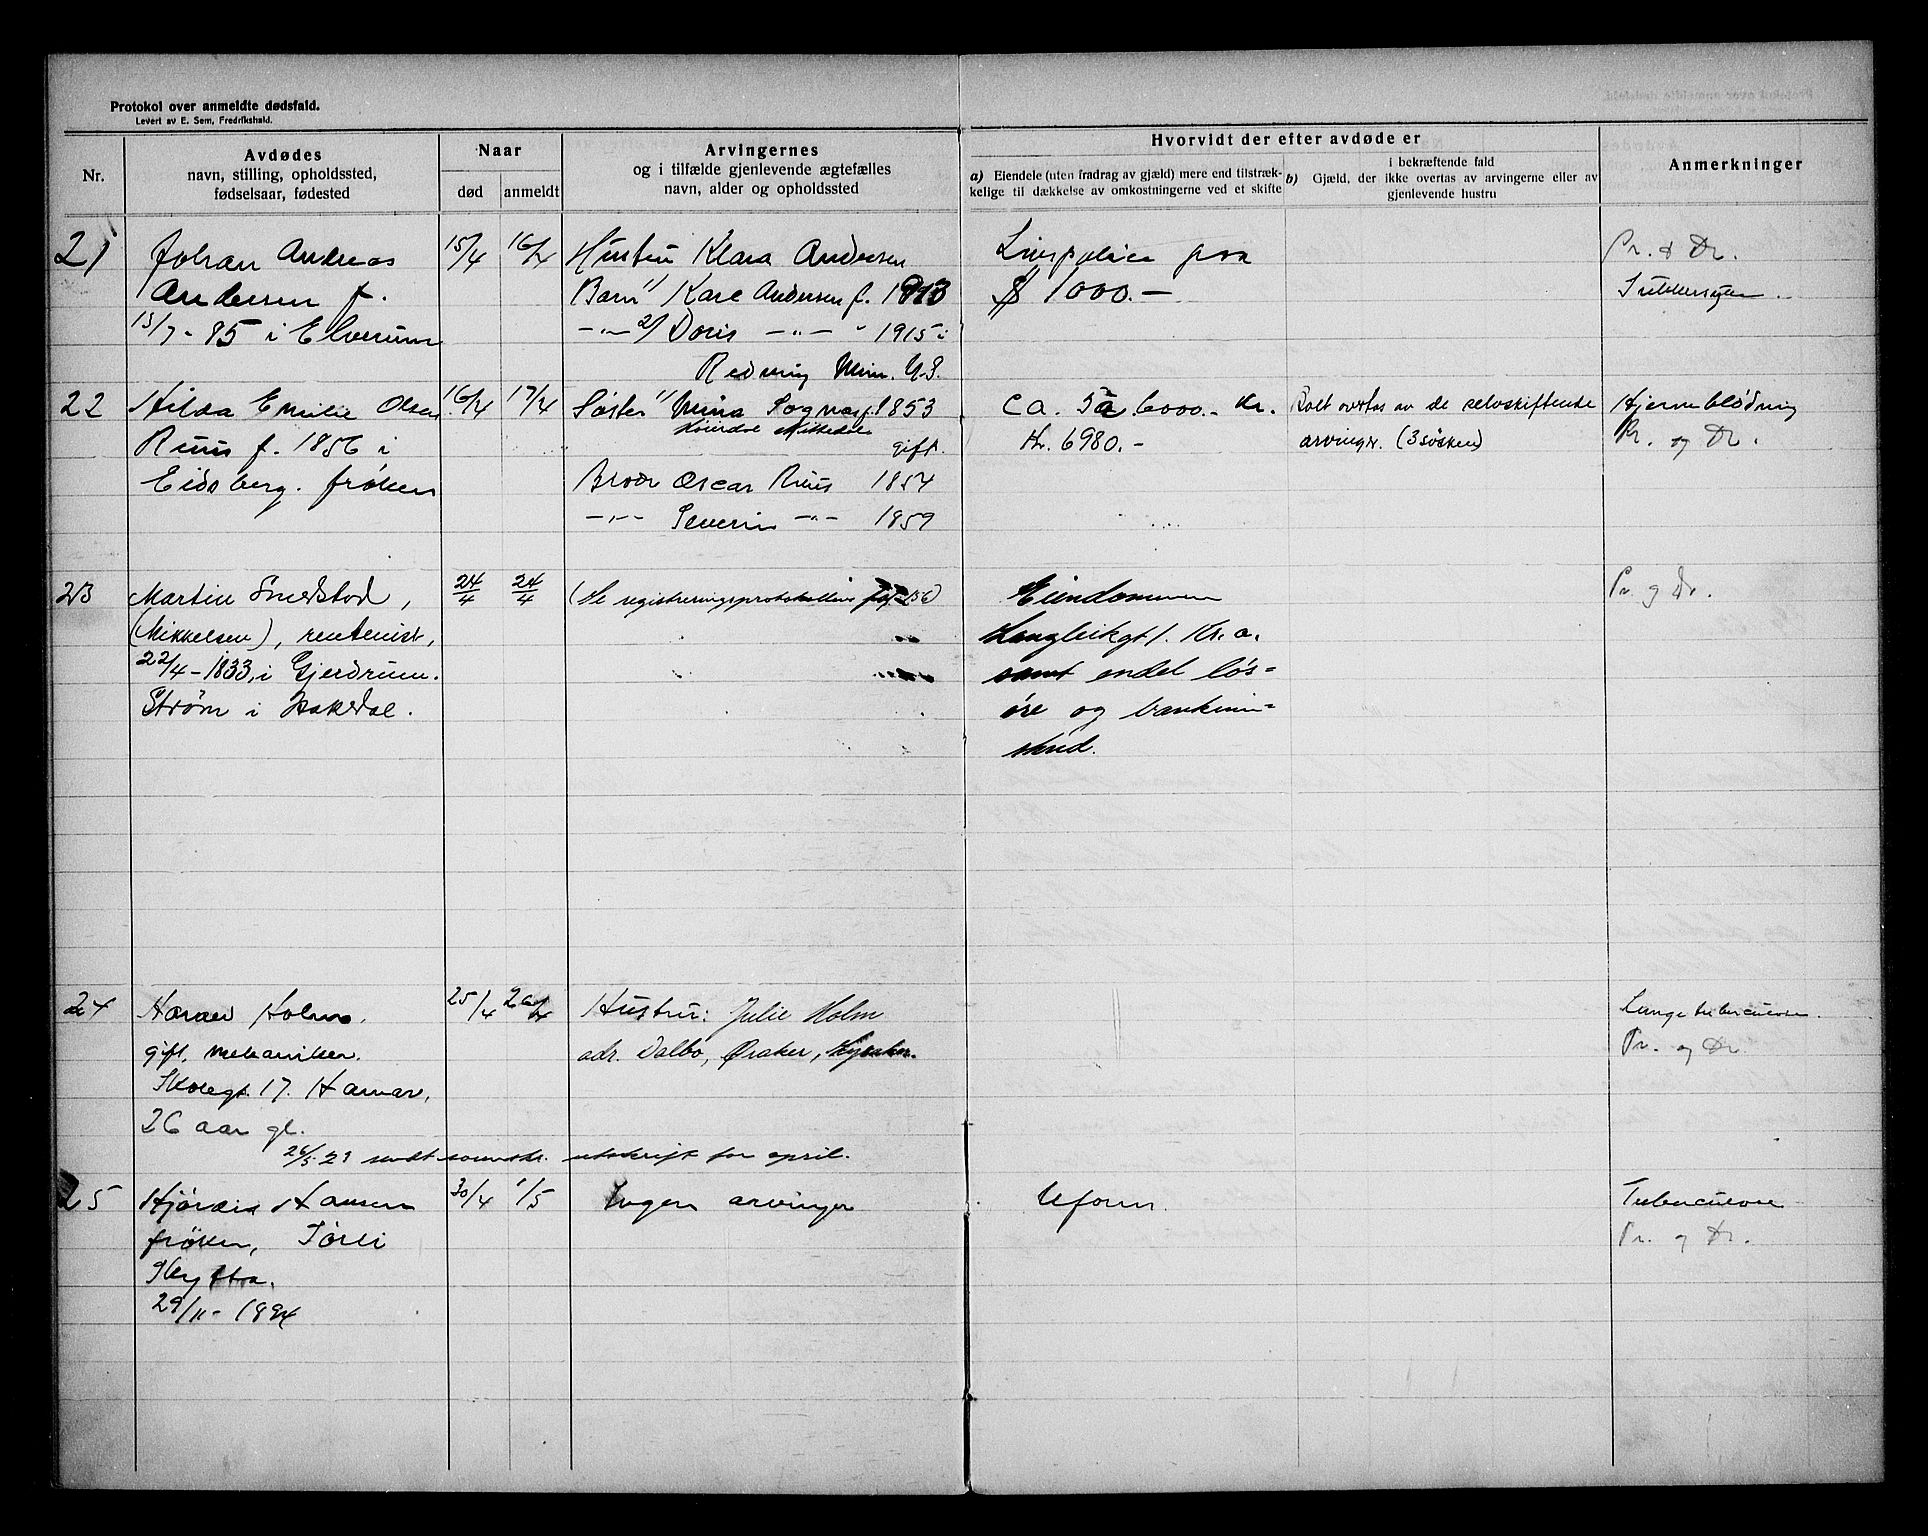 Protokol over anmeldte dødsfald.
Levert av E. Sem, Fredrikshald.
Nr.
Avdødes
navn, stilling, opholdssted,
fødselsaar, fødested
Naar
død
anmeldt
Arvingernes
og i tilfælde gjenlevende ægtefælles
navn, alder og opholdssted
Hvorvidt der efter avdøde er
a) Eiendele (uten fradrag av gjæld) mere end tilstræk-
kelige til dækkelse av omkostningerne ved et skifte
i bekræftende fald
b) Gjæld, der ikke overtas av arvingerne eller av
gjenlevende hustru
Anmerkninger
21
Johan Andreas
Andersen f.
15/7 - 85 i Elverum
15/4
16/4
Hustru Klara Andersen
Barn 1) Kare Andersen f. 1913
-"- 2) Doris -"- " 1915 i
Redwing Minn. U.S.
Livspolice paa
$ 1000.-
Pr. & Dr.
Sukkersyke
22
Hilda Emilie Olsen
Ruus f. 1856 i
Eidsberg. frøken
16/4
17/4
Søster Mina Sognas f. 1853
gift.
Broder Oscar Ruus 1854
-"- Severin -"- 1859
ca. 5 a 6000.- Kr.
Kr. 6980.-
Boet overtas av de selvskiftende
arvinger. (3 søsken)
Hjerneblødning
Pr. og Dr.
23
Martin Smedstad,
(Mikkelsen), rentenist,
22/4 - 1833, i Gjerdrum.
Strøm i Hakedal.
24/4
24/4
(Se registreringsprotokollens pag. 256)
Eiendommen
Langleikgt 1. Kr.a.
samt endel løs-
øre og bankinn-
skud.
Pr. og Dr.
24
Harald Holm.
gift, mekaniker.
Skolegt. 17. Hamar,
26 aar gl.
25/4
26/4
Hustru: Julie Holm
adr. Dalbo, Øraker, Lysaker.
Lungetuberculose.
Pr. og Dr.
26/5-21 sendt sorenskr. utskrift for april.
25
Hjørdis Hansen
frøken, Tørli
Skytta.
29/11 - 1894
30/4
1/5
Ingen arvinger
Uform.
Tuberculose
Pr. og Dr.